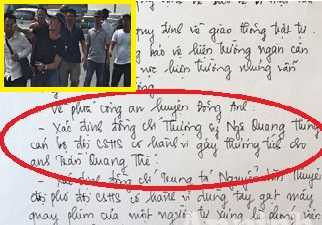 quy định về giao thông trật tự.
bảo vệ hiện trường ngăn cản
vực hiện trường nhưng vẫn
Về phía công an huyện Đông Anh:
- Xác định đồng chí Thượng sỹ Ngô Quang Hùng
cán bộ đội CSHS có hành vi gây thương tích cho
anh Trần Quang Thế.
- Xác định đồng chí Trung tá Nguyễn
đội phó đội CSHS có hành vi dùng tay gạt máy
quay phim của một người tự xưng là phóng